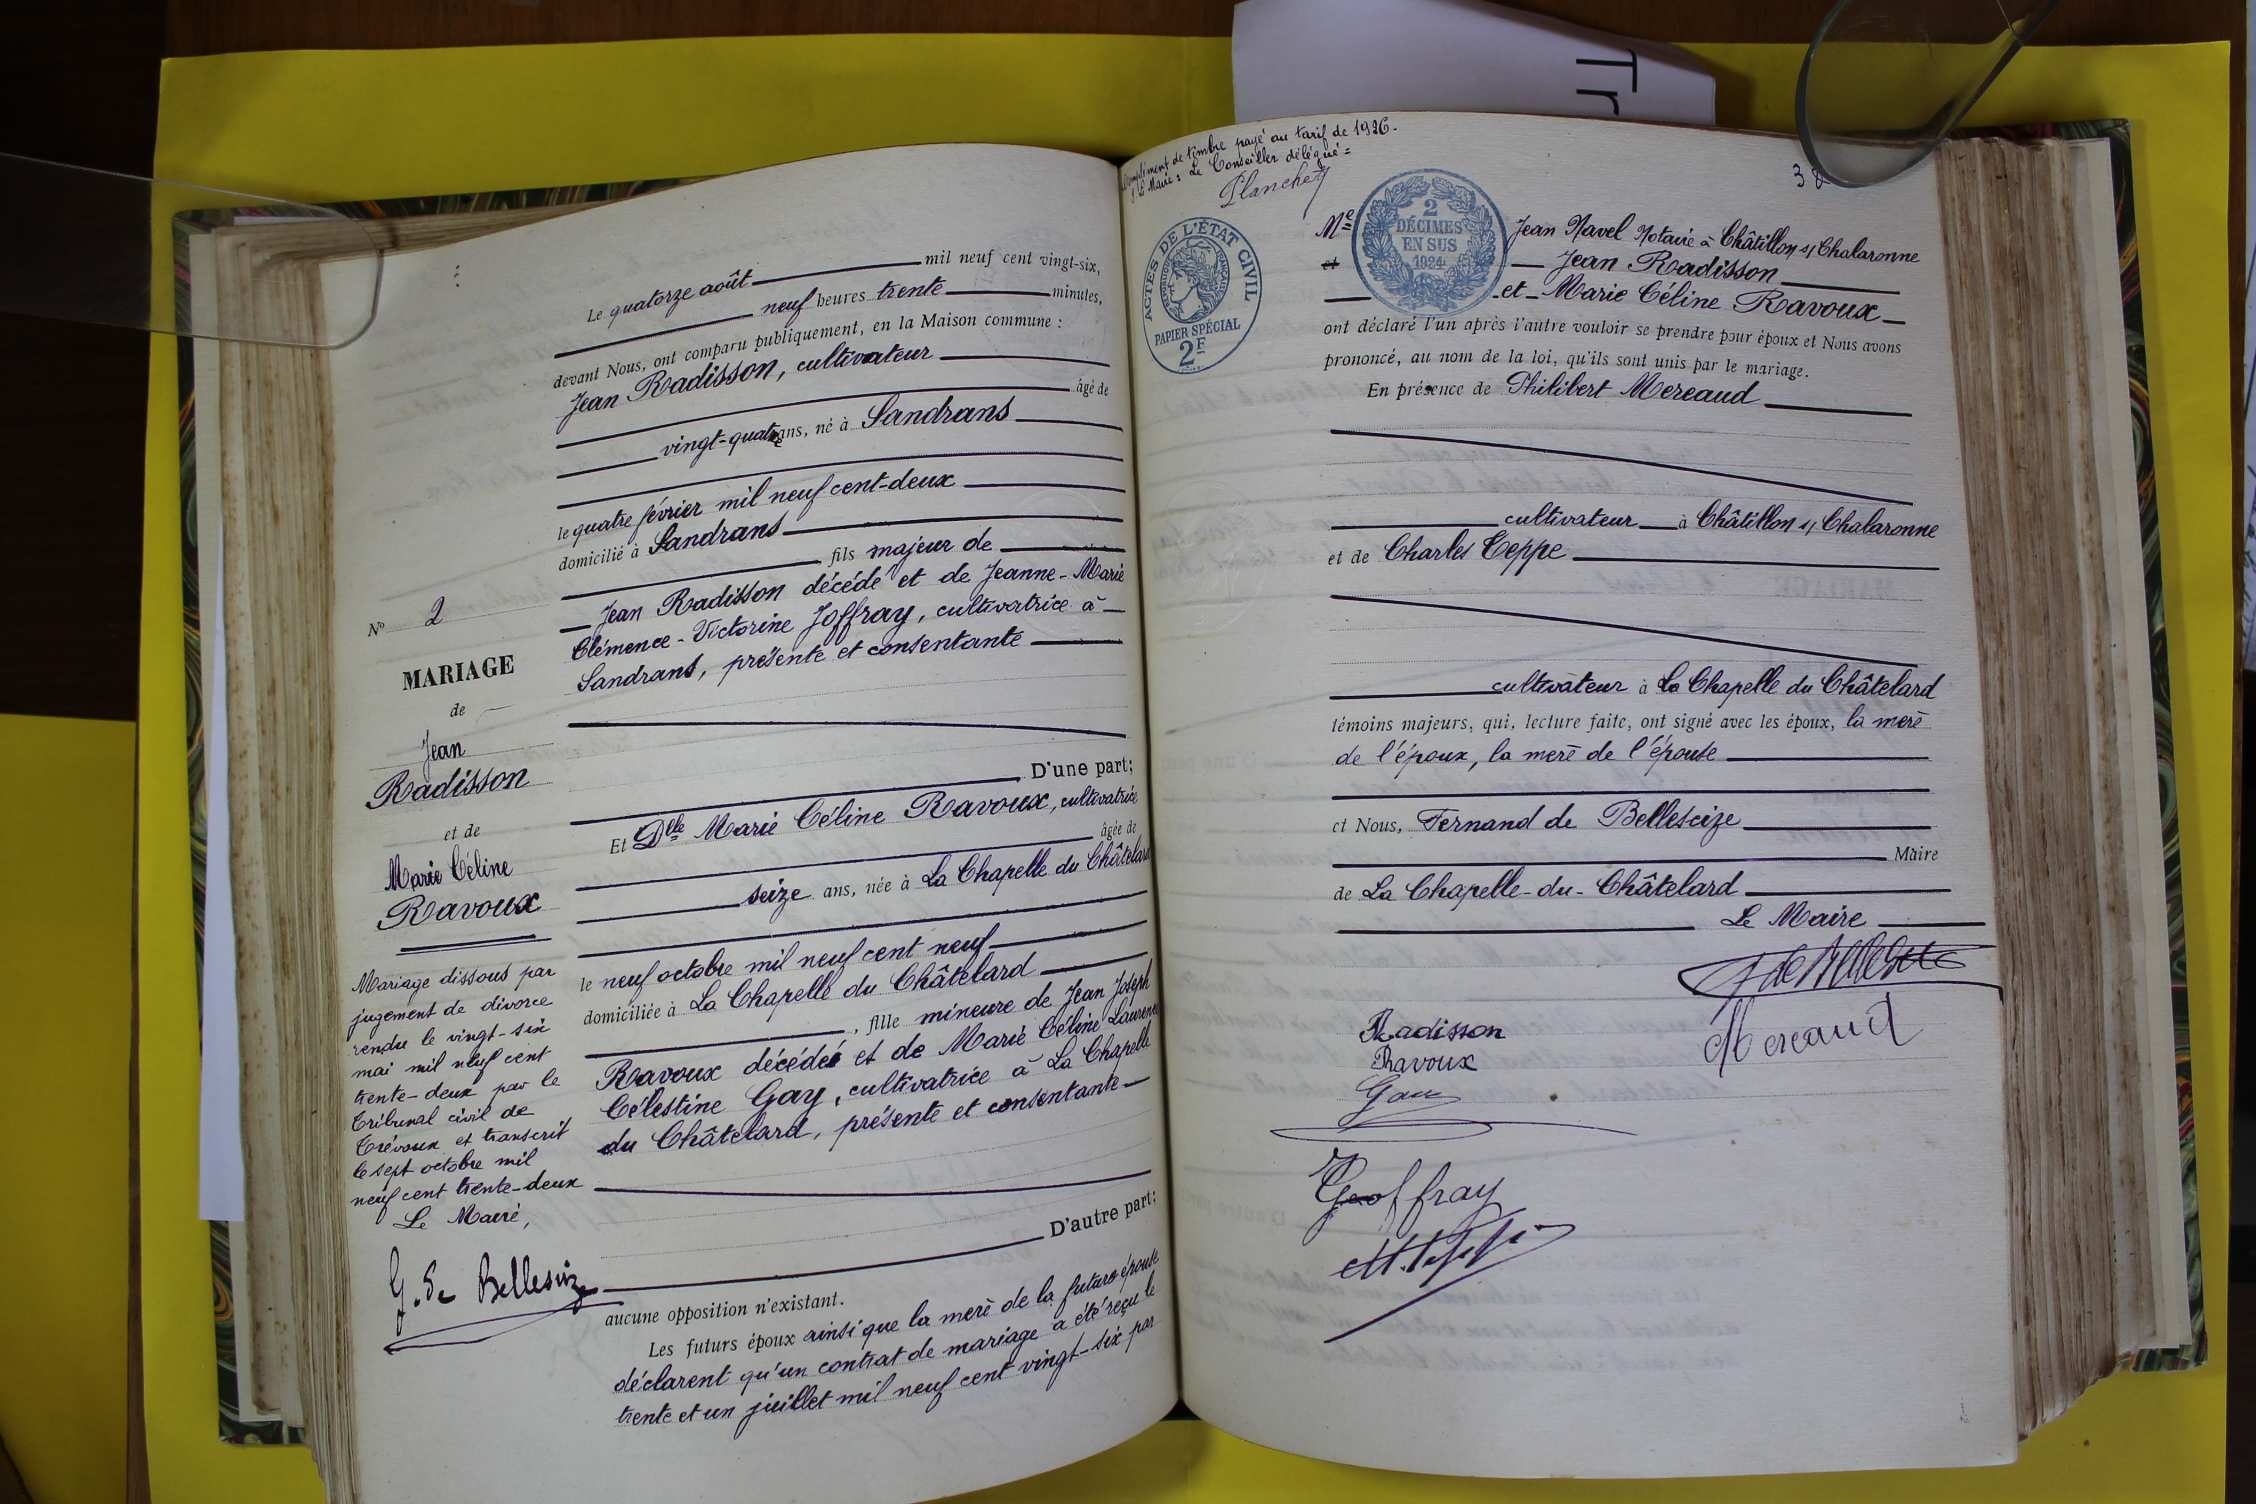 Le quatorze août mil neuf cent vingt-six,
neuf heures trente minutes,
devant Nous, ont comparu publiquement, en la Maison commune :
Jean Radisson, cultivateur
âgé de
vingt-quatre ans, né à Sandrans
le quatre février mil neuf cent-deux
domicilié à Sandrans
fils majeur de
Jean Radisson décédé et de Jeanne-Marie
Clémence-Victorine Joffray, cultivatrice à
Sandrans, présente et consentante
D'une part;
Et Dlle Marie Céline Ravoux, cultivatrice
âgée de
seize ans, née à La Chapelle du Châtelard
le neuf octobre mil neuf cent neuf
domiciliée à La Chapelle du Châtelard
, fille mineure de Jean Joseph
Ravoux décédé et de Marie Céline Laurence
Célestine Gay, cultivatrice à La Chapelle
du Châtelard, présente et consentante
D'autre part;
aucune opposition n'existant.
Les futurs époux ainsi que la mère de la future épouse
déclarent qu'un contrat de mariage a été reçu le
trente et un juillet mil neuf cent vingt-six par
No 2
MARIAGE
de
Jean
Radisson
et de
Marie Céline
Ravoux
Mariage dissous par
jugement de divorce
rendu le vingt-six
mai mil neuf cent
trente-deux par le
Tribunal civil de
Trévoux et transcrit
le sept octobre mil
neuf cent trente-deux
Le Maire,
G. de Bellescize
Complément de timbre payé au tarif de 1926.
P. le Maire: Le Conseiller délégué =
Planchet
Tr
38
ACTES DE L'ÉTAT CIVIL
RÉPUBLIQUE FRANÇAISE
PAPIER SPÉCIAL
2F
2
DÉCIMES
EN SUS
1924
Me Jean Navel Notaire à Châtillon s/ Chalaronne
et Jean Radisson
et Marie Céline Ravoux
ont déclaré l'un après l'autre vouloir se prendre pour époux et Nous avons
prononcé, au nom de la loi, qu'ils sont unis par le mariage.
En présence de Philibert Mereaud
cultivateur à Châtillon s/ Chalaronne
et de Charles Teppe
cultivateur à La Chapelle du Châtelard
témoins majeurs, qui, lecture faite, ont signé avec les époux, la mère
de l'époux, la mère de l'épouse
et Nous, Fernand de Bellescize
Maire
de La Chapelle-du-Châtelard
Le Maire
F de Bellescize
Radisson
Mereaud
Ravoux
Gay
Geoffray